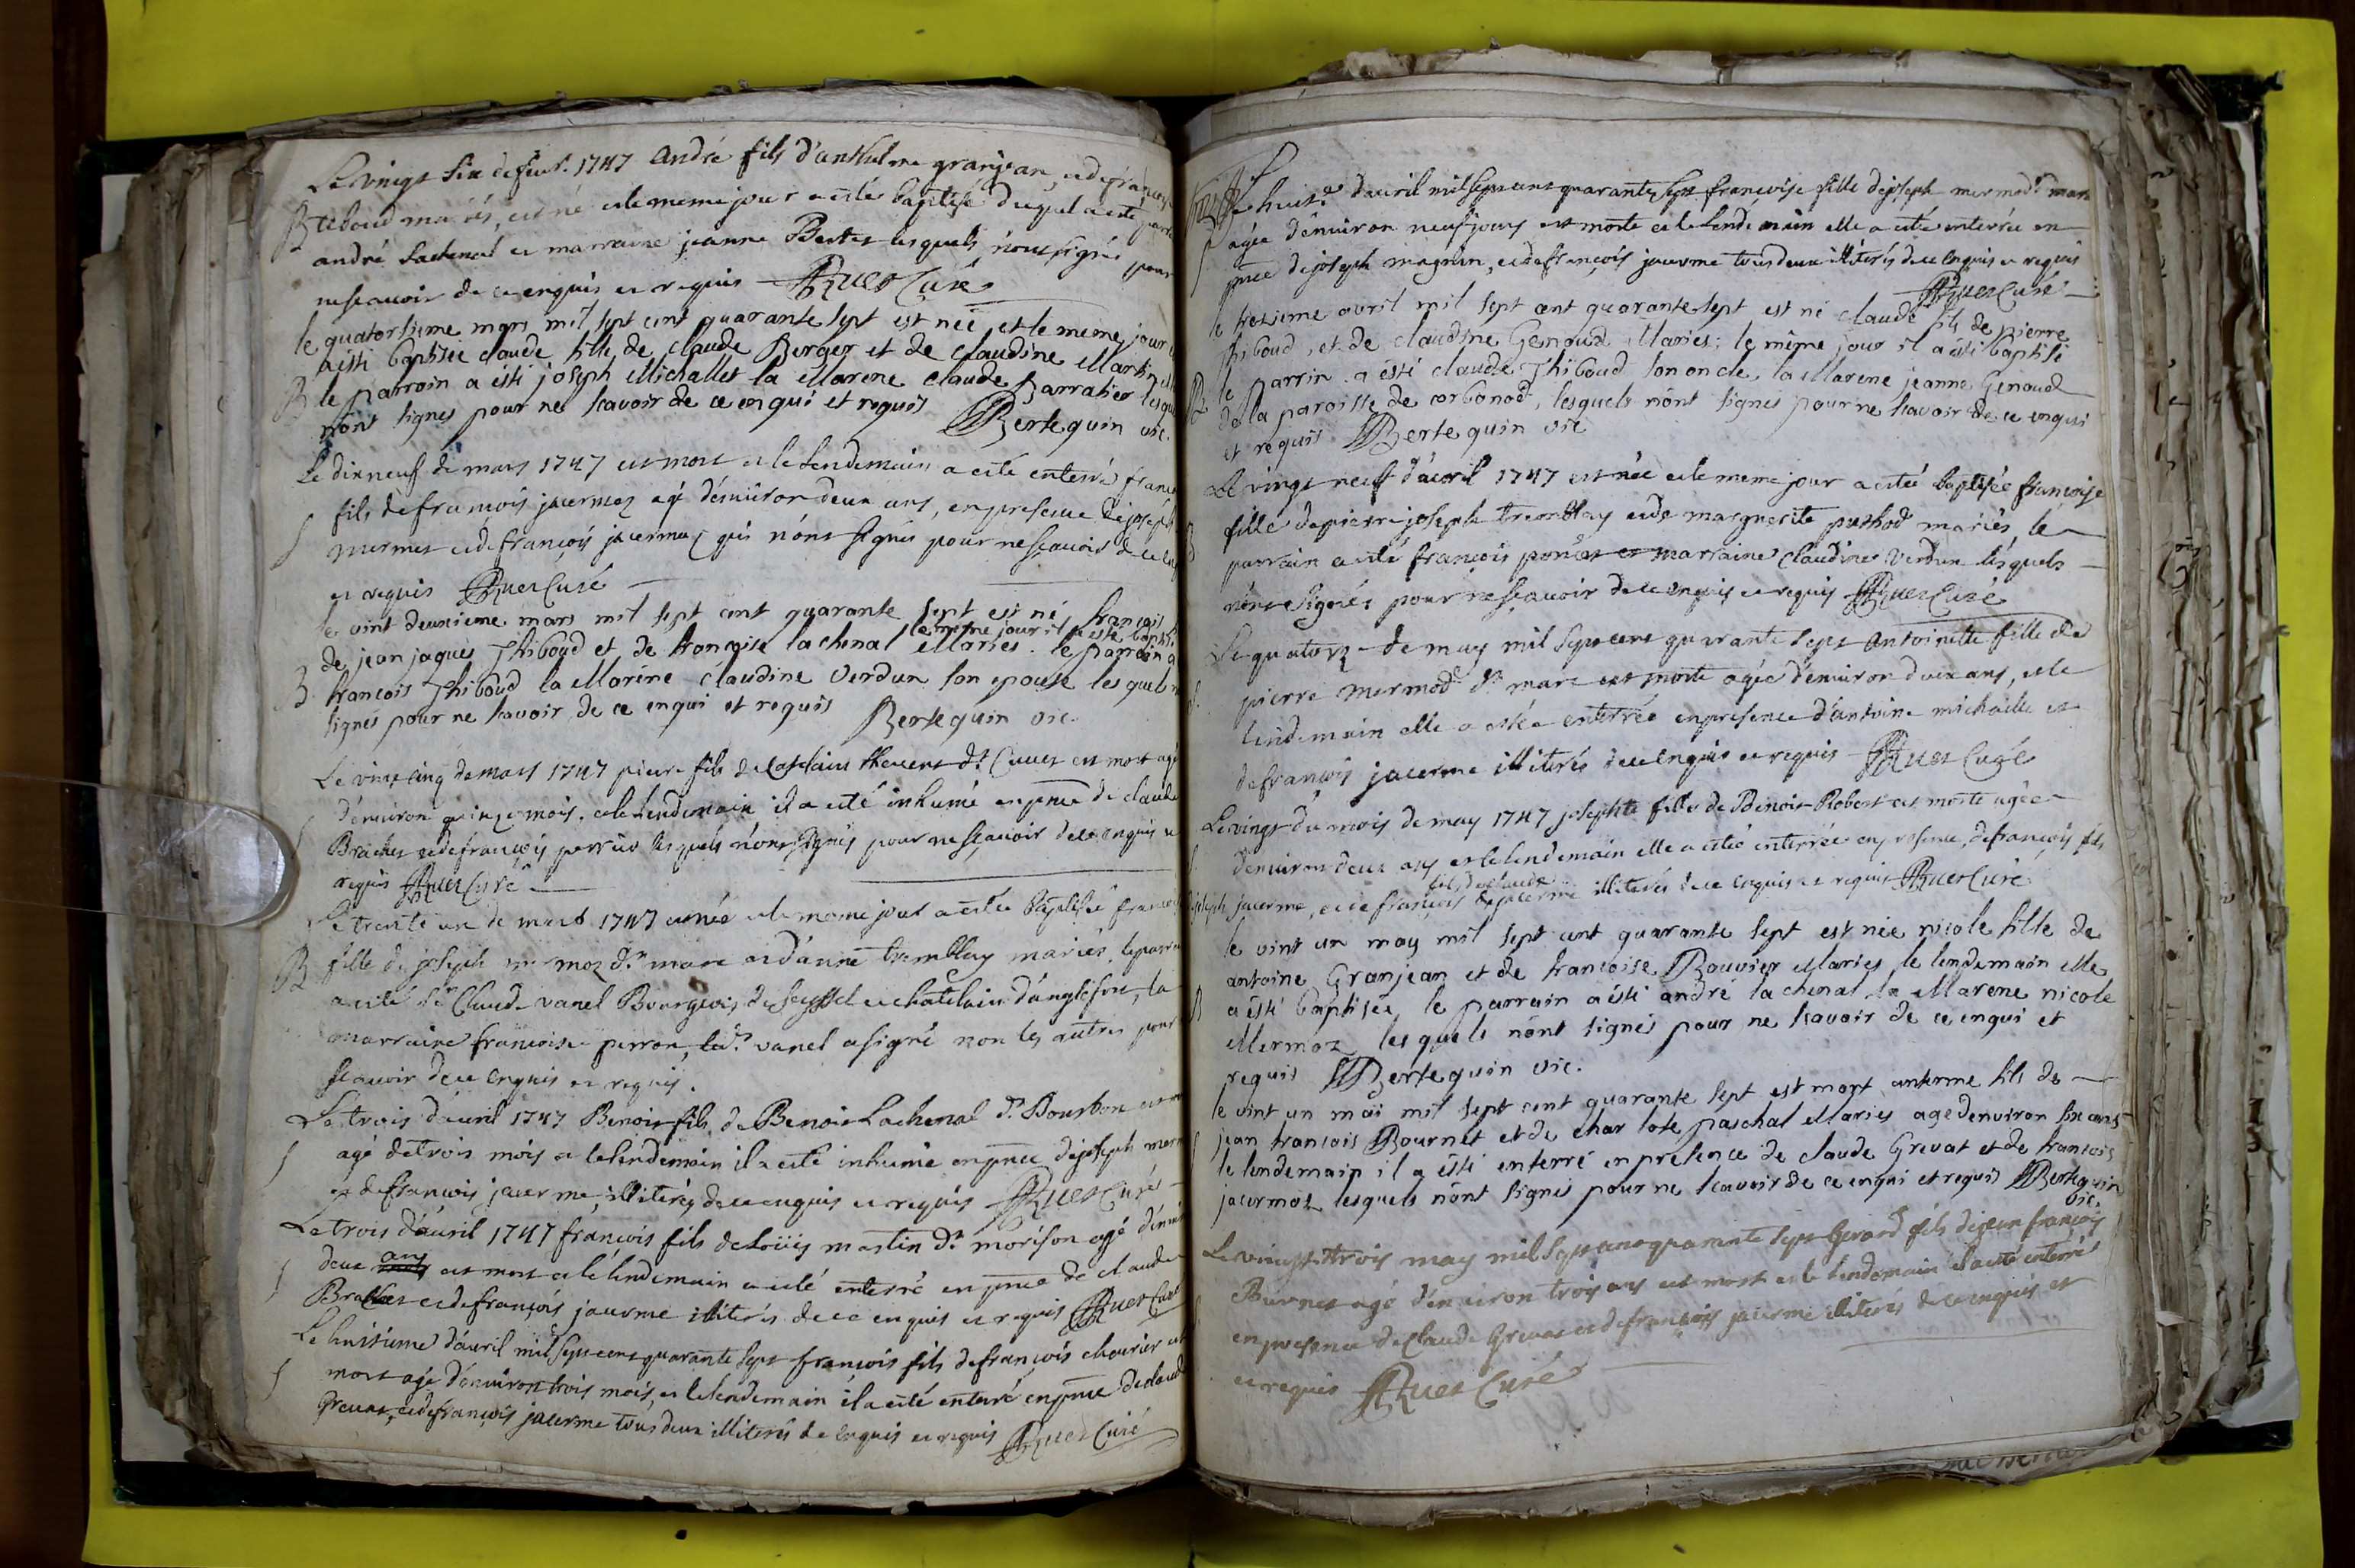 Le vingt six de feur. 1747 André fils d'anthelme granjean, et de françoise
B tiboud mariés, est né et le meme jour a esté baptisé duquel a esté parr
andré Lachenal et marraine jeanne Bester lesquels n'ont signés pour
ne scavoir de ce enquis et requis Ruer Curé
le quatorsieme mars mil sept cent quarante sept est née et le meme jour
a esti baptisée claude fille de claude Berger et de claudine Martin
B le parroin a ésti joseph Michallet la Marene claude Barratier lesqu
nont signes pour ne scavoir de ce enqui et requis Bertequin vic.
Le dixneuf de mars 1747 est mort et le lendemain a esté enterré franc
fils de francois jacermoz agé d'enuiron deux ans, en presence de joseph
S mermet et de françois jacermoz qui n'ont signés pour ne scavoir de ce en
et requis Ruer Curé
le vint deuxieme mars mil sept cent quarante sept est né francois f
le meme jour il a esté bapti
de jean jaques Thiboud et de francoise lachenal Maries. le parroin a
B francois Thiboud la Marene claudine Verdun son epouse lesquels n
signés pour ne scavoir de ce enqui et requis Bertequin vic.
Le vint cinq de mars 1747 pierre fils de Castelain theuent dt. Cuuet est mort agé
d'enuiron quinze mois. et le lendemain il a esté inhumé en pnce de claude
Brachet et de françois perrier lesquels n'ont signés pour ne scavoir de ce enquis et
requis Ruer Curé
Le trente un de mars 1747 est née et le meme jour a estée baptisée francoi
B fille de joseph mermoz dt. marc et d'anne tremblay mariés. le parra
a esté sr. Claude vanel Bourgeois de seyssel et chatelain d'anglefort, la
marraine françoise perron, led. vanel a signé non les autres pour
scavoir de ce enquis et requis.
Le trois d'auril 1747 Benoit fils de Benoit Lachenal dt. Bourbon est m
S agé de trois mois et le lendemain il a esté inhumé en pnce de joseph merm
et de francois jacerme, illiterés de ce enquis et requis Ruer Curé
Le trois d'auril 1747 francois fils de Loüis martin dt. morison agé d'enui
ans
S deux mois est mort et le lendemain a esté enterré en pnce de claude
Brachet et de françois jacerme illiterés de ce enquis et requis Ruer Curé
Le huitieme d'auril mil sept cent quarante sept francois fils de francois cheurier est
S mort agé d'enuiron trois mois, et le lendemain il a esté enterré en pnce de claude
Greuat, et de françois jacerme tous deux illiterés de enquis et requis Ruer Curé
Le huite. d'auril mil sept cent quarante sept françoise fille de joseph mermod dt. marc
agée d'enuiron neuf jours est morte et le lendemain elle a estée enterrée en
pnce de joseph magnin, et de francois jacerme tous deux illiterés de ce enquis et requis
Ruer Curé
le tresieme avril mil sept cent quarante sept est né claude fils de pierre
Thiboud, et de claudine Genoud Maries; le même jour il a ésti baptisé
B le parrin a ésti claude Thiboud son oncle, la Marene jeanne Genoud
de la paroisse de corbonod, lesquels nónt signes pour ne scavoir de ce enqui
et requis Bertequin vic
Le vingt neuf d'auril 1747 est née et le meme jour a estée baptisée françoise
fille de pierre joseph tremblay et de marguerite puthod mariés, le
B parrain a esté françois poncet et marraine claudine verdun lesquels
n'ont signés pour ne scavoir de ce enquis et requis Ruer Curé
Le quatorze de may mil sept cent quarante sept Antoinette fille de
S. pierre mermod dt. marc est morte agée d'enuiron deux ans, et le
lendemain elle a estée enterrée en presence d'antoine michaille et
de françois jacerme illiterés de ce enquis et requis Ruer Curé
Le vingt du mois de may 1747 josephte fille de Benoit Robert est morte agée
d'enuiron deux ans et le lendemain elle a estée enterrée en presence, de françois fils
fils de claude
de joseph jacerme, et de françois jacerme illiterés de ce enquis et requis Ruer Curé
le vint un may mil sept cent quarante sept est née nicole fille de
antoine Granjean et de francoise Bouvier Maries, le lendemain elle
B a ésti baptisée, le parrain a ésti andré lachenal la Marene nicole
Mermoz lesquels nónt signés pour ne scavoir de ce enqui et
requis Bertequin vic.
le vint un mai mil sept cent quarante sept est mort anterme fils de
jean francois Bournet et de charlote paschal Maries age denviron six ans
le lendemain il a ésti enterré en presence de claude Grevat et de francois
jacermoz lesquels nónt signés pour ne scavoir de ce enqui et requis Bertequin
vic.
Le vingt trois may mil sept cent quarante sept Girard fils de jean françois
Burnet agé d'enuiron trois ans est mort et le lendemain il a esté enterré
en presence de Claude Greuat et de françois jacerme illiterés de ce enquis et
et requis Ruer Curé